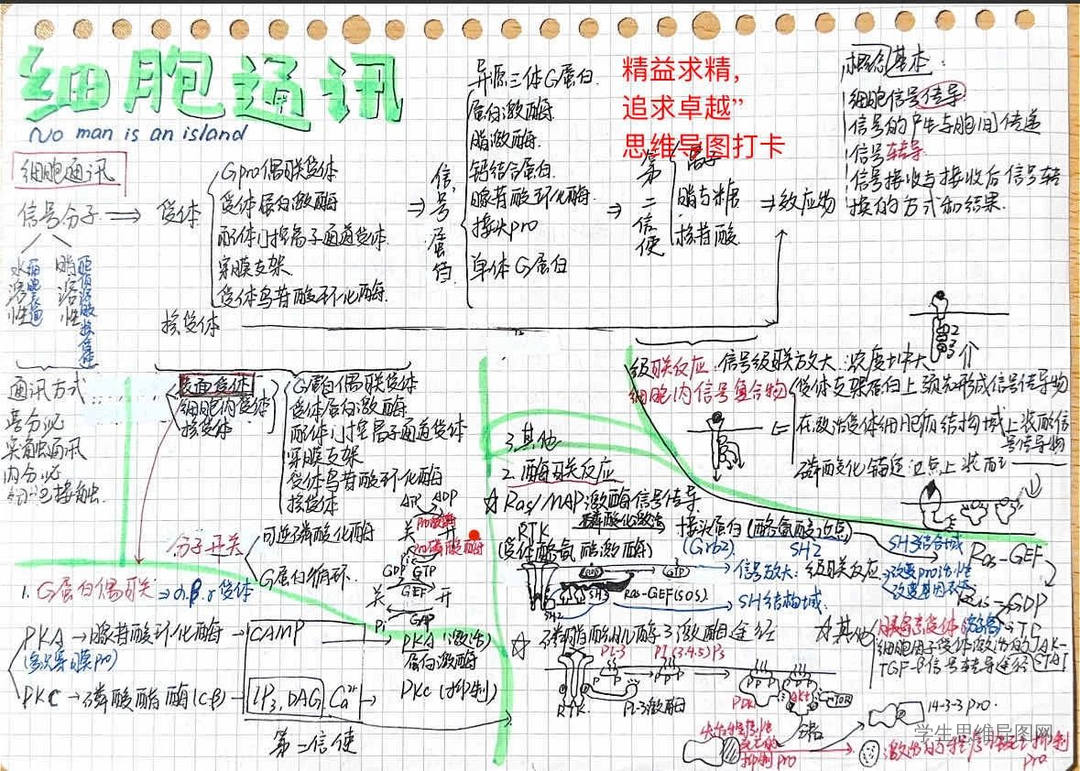 细胞通讯
No man is an island
精益求精，
追求卓越”
思维导图打卡
概念基本：
细胞信号传导
信号的产生与胞间传递
信号转导
信号接收与接收后信号转
换的方式和结果.
细胞通讯
信号分子 ⇒ 受体
Gpro偶联受体
受体蛋白激酶
配体门控离子通道受体
穿膜支架
受体鸟苷酸环化酶
核受体
⇒ 信号蛋白
异源三体G蛋白
蛋白激酶
脂激酶
钙结合蛋白
腺苷酸环化酶
接头pro
单体G蛋白
⇒ 第二信使
离子
脂与糖
核苷酸
⇒ 效应物
水溶性
脂溶性
通讯方式
旁分泌
突触通讯
内分泌
细胞接触
表面受体
细胞内受体
核受体
G蛋白偶联受体
受体蛋白激酶
配体门控离子通道受体
穿膜支架
受体鸟苷酸环化酶
核受体
级联反应：信号级联放大，浓度增大
细胞内信号复合物
受体支架蛋白上预先形成信号传导物
在激活受体细胞质结构域上装配信号传导物
磷酸化锚定位点上装配
分子开关
可逆磷酸化酶
ATP ADP
关 开
G蛋白循环
GDP GTP
GEF
关 开
GAP
Pi
1. G蛋白偶联 ⇒ α,β,γ受体
PKA → 腺苷酸环化酶 → CAMP → PKA (激活)
(多次穿膜pro)
蛋白激酶
PKC → 磷酸酯酶(Cβ) → IP3, DAG, Ca2+ → PKC (抑制)
第二信使
3.其他
2.酶联反应
☆ Ras/MAP激酶信号传导
RTK
(受体酪氨酸激酶)
磷酸化激活
接头蛋白(酪氨酸位点)
(Grb2) SH2
SH3结合域
Ras-GEF
GTP
信号放大：级联反应
改变pro活性
改变基因表达
SH3
Ras-GEF(SOS)
SH结构域
SH2
Ras-GDP
☆ 磷脂酰肌醇3激酶途径
PI-3 PI(3,4,5)P3
RTK
PI-3激酶
PDK
Akt
TOR
☆其他
细胞因子受体激活的JAK-STAT
TGF-β信号转导途径
14-3-3 pro.
抑制pro
学生思维导图网